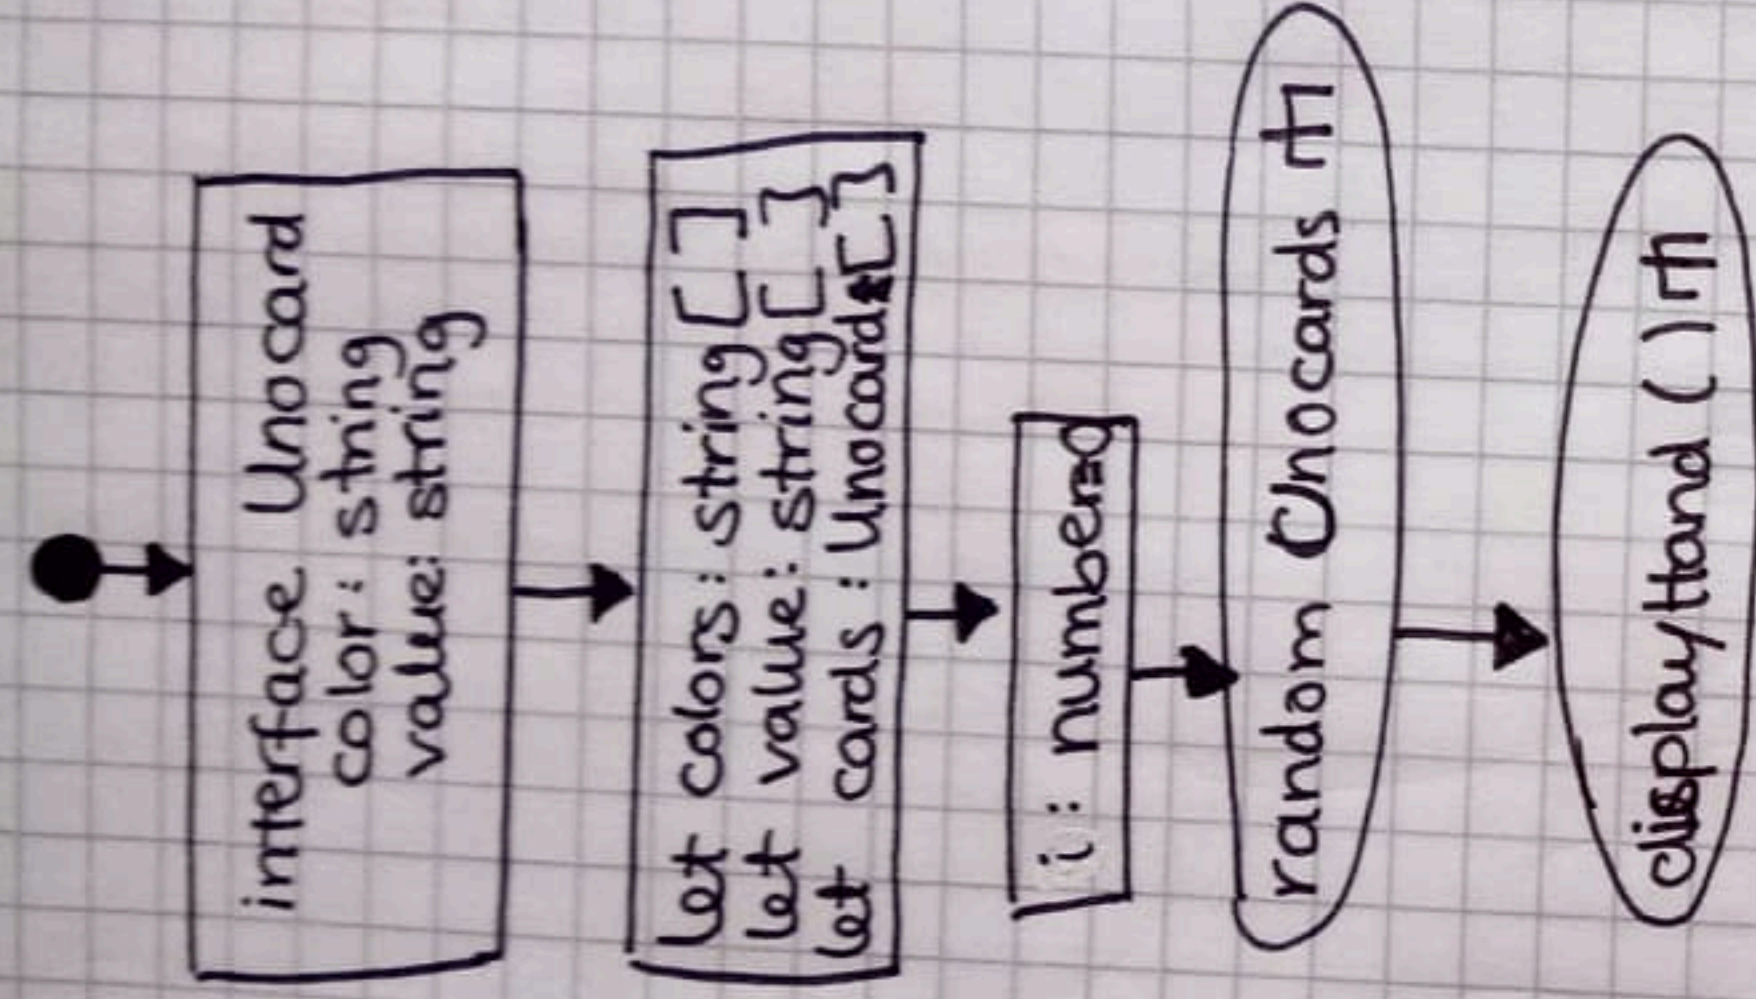 interface Unocard
color: string
value: string
let colors: string[]
let value: string[]
let cards: Unocard[]
i: number=0
random Unocards
displayHand()